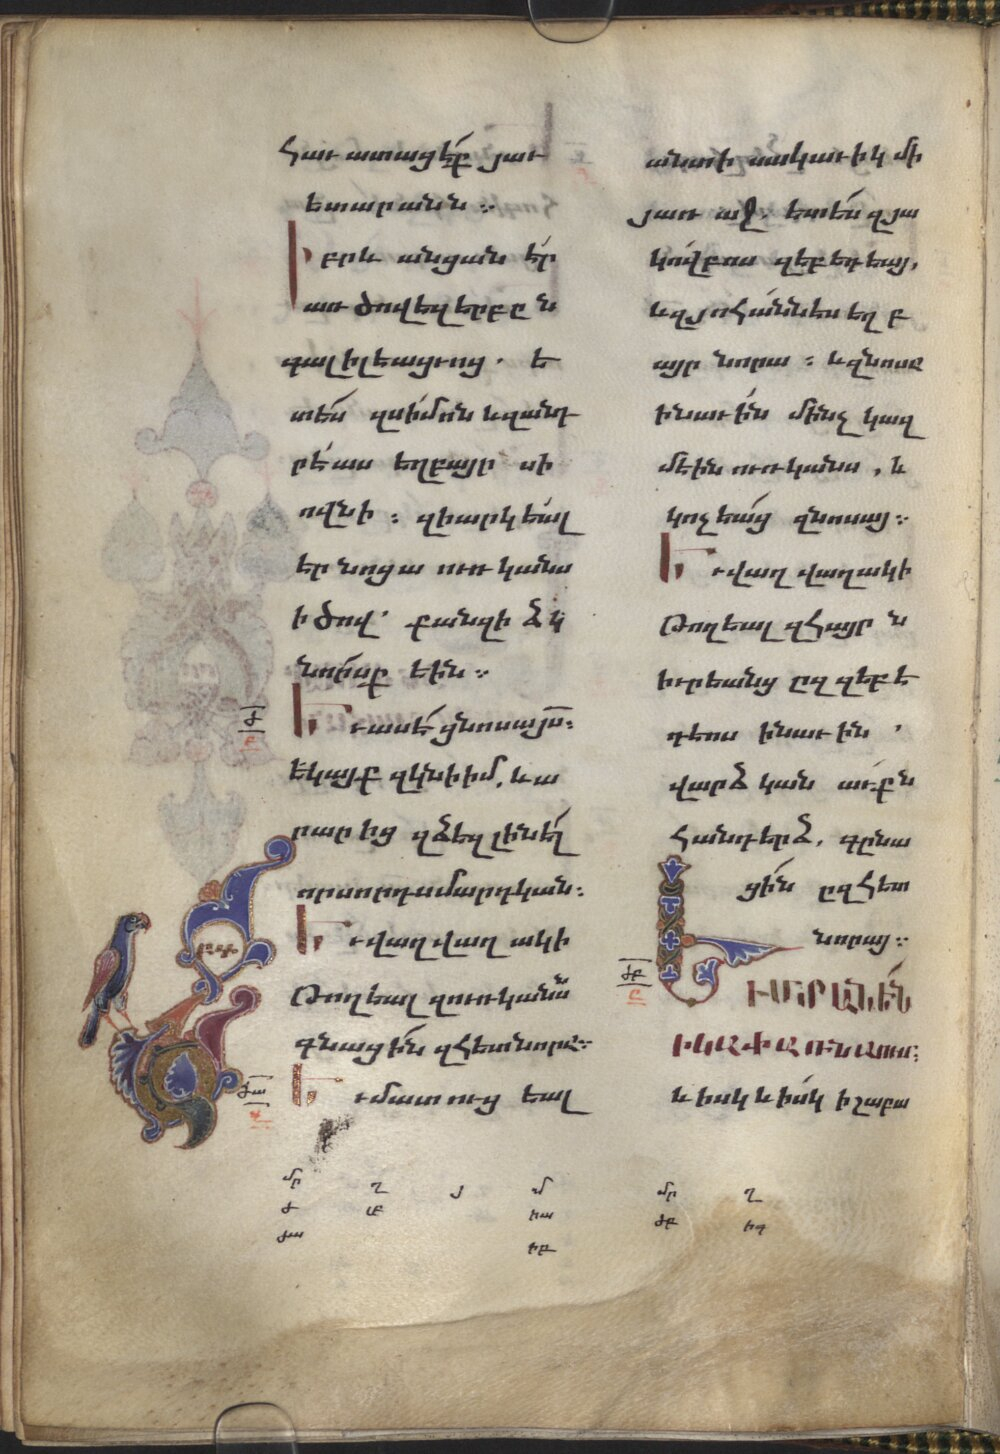 հաւատացէք յաւ
ետարանն ։
Իբրև անցանէր
առ ծովեզերբըն
գալիլեացւոց . ե
տես զսիմոն և զանդ
րէաս եղբայր սի
ովնի ։ զի արկեալ
էր նոցա ուռկանս
ի ծով՝ քանզի ձկ
նորսք էին ։
Եւ ասէ ցնոսա յս։
եկայք զկնի իմ, և ա
րարից զձեզ լինել
որսորդս մարդկան։
Եւ վաղվաղակի
թողեալ զուռկանսն
գնացին զհետ նորա։
Եւ մատուցեալ
անտի սակաւիկ մի
յառաջ. ետես զյա
կովբոս զեբեդեայ,
և զյոհաննես եղբ
այր նորա ։ և զնոսա
ի նաւին մինչ կազ
մէին ուռկանս , և
կոչեաց զնոսայ ։
Եւ վաղվաղակի
թողեալ զհայրն
իւրեանց ըզզեբե
դեոս ի նաւին ,
վարձկանաւքն
հանդերձ, գընա
ցին ըզհետ
նորայ ։
ԵՒ ՄՏԱՆԵՆ
Ի ԿԱՓԱՌՆԱՈւՄ։
և իսկ և իսկ ի շաբա
ժ
ժա
ժբ
մր ղ յ մ
ժ
ժա իա
իբ
մր ղ
ժբ իգ